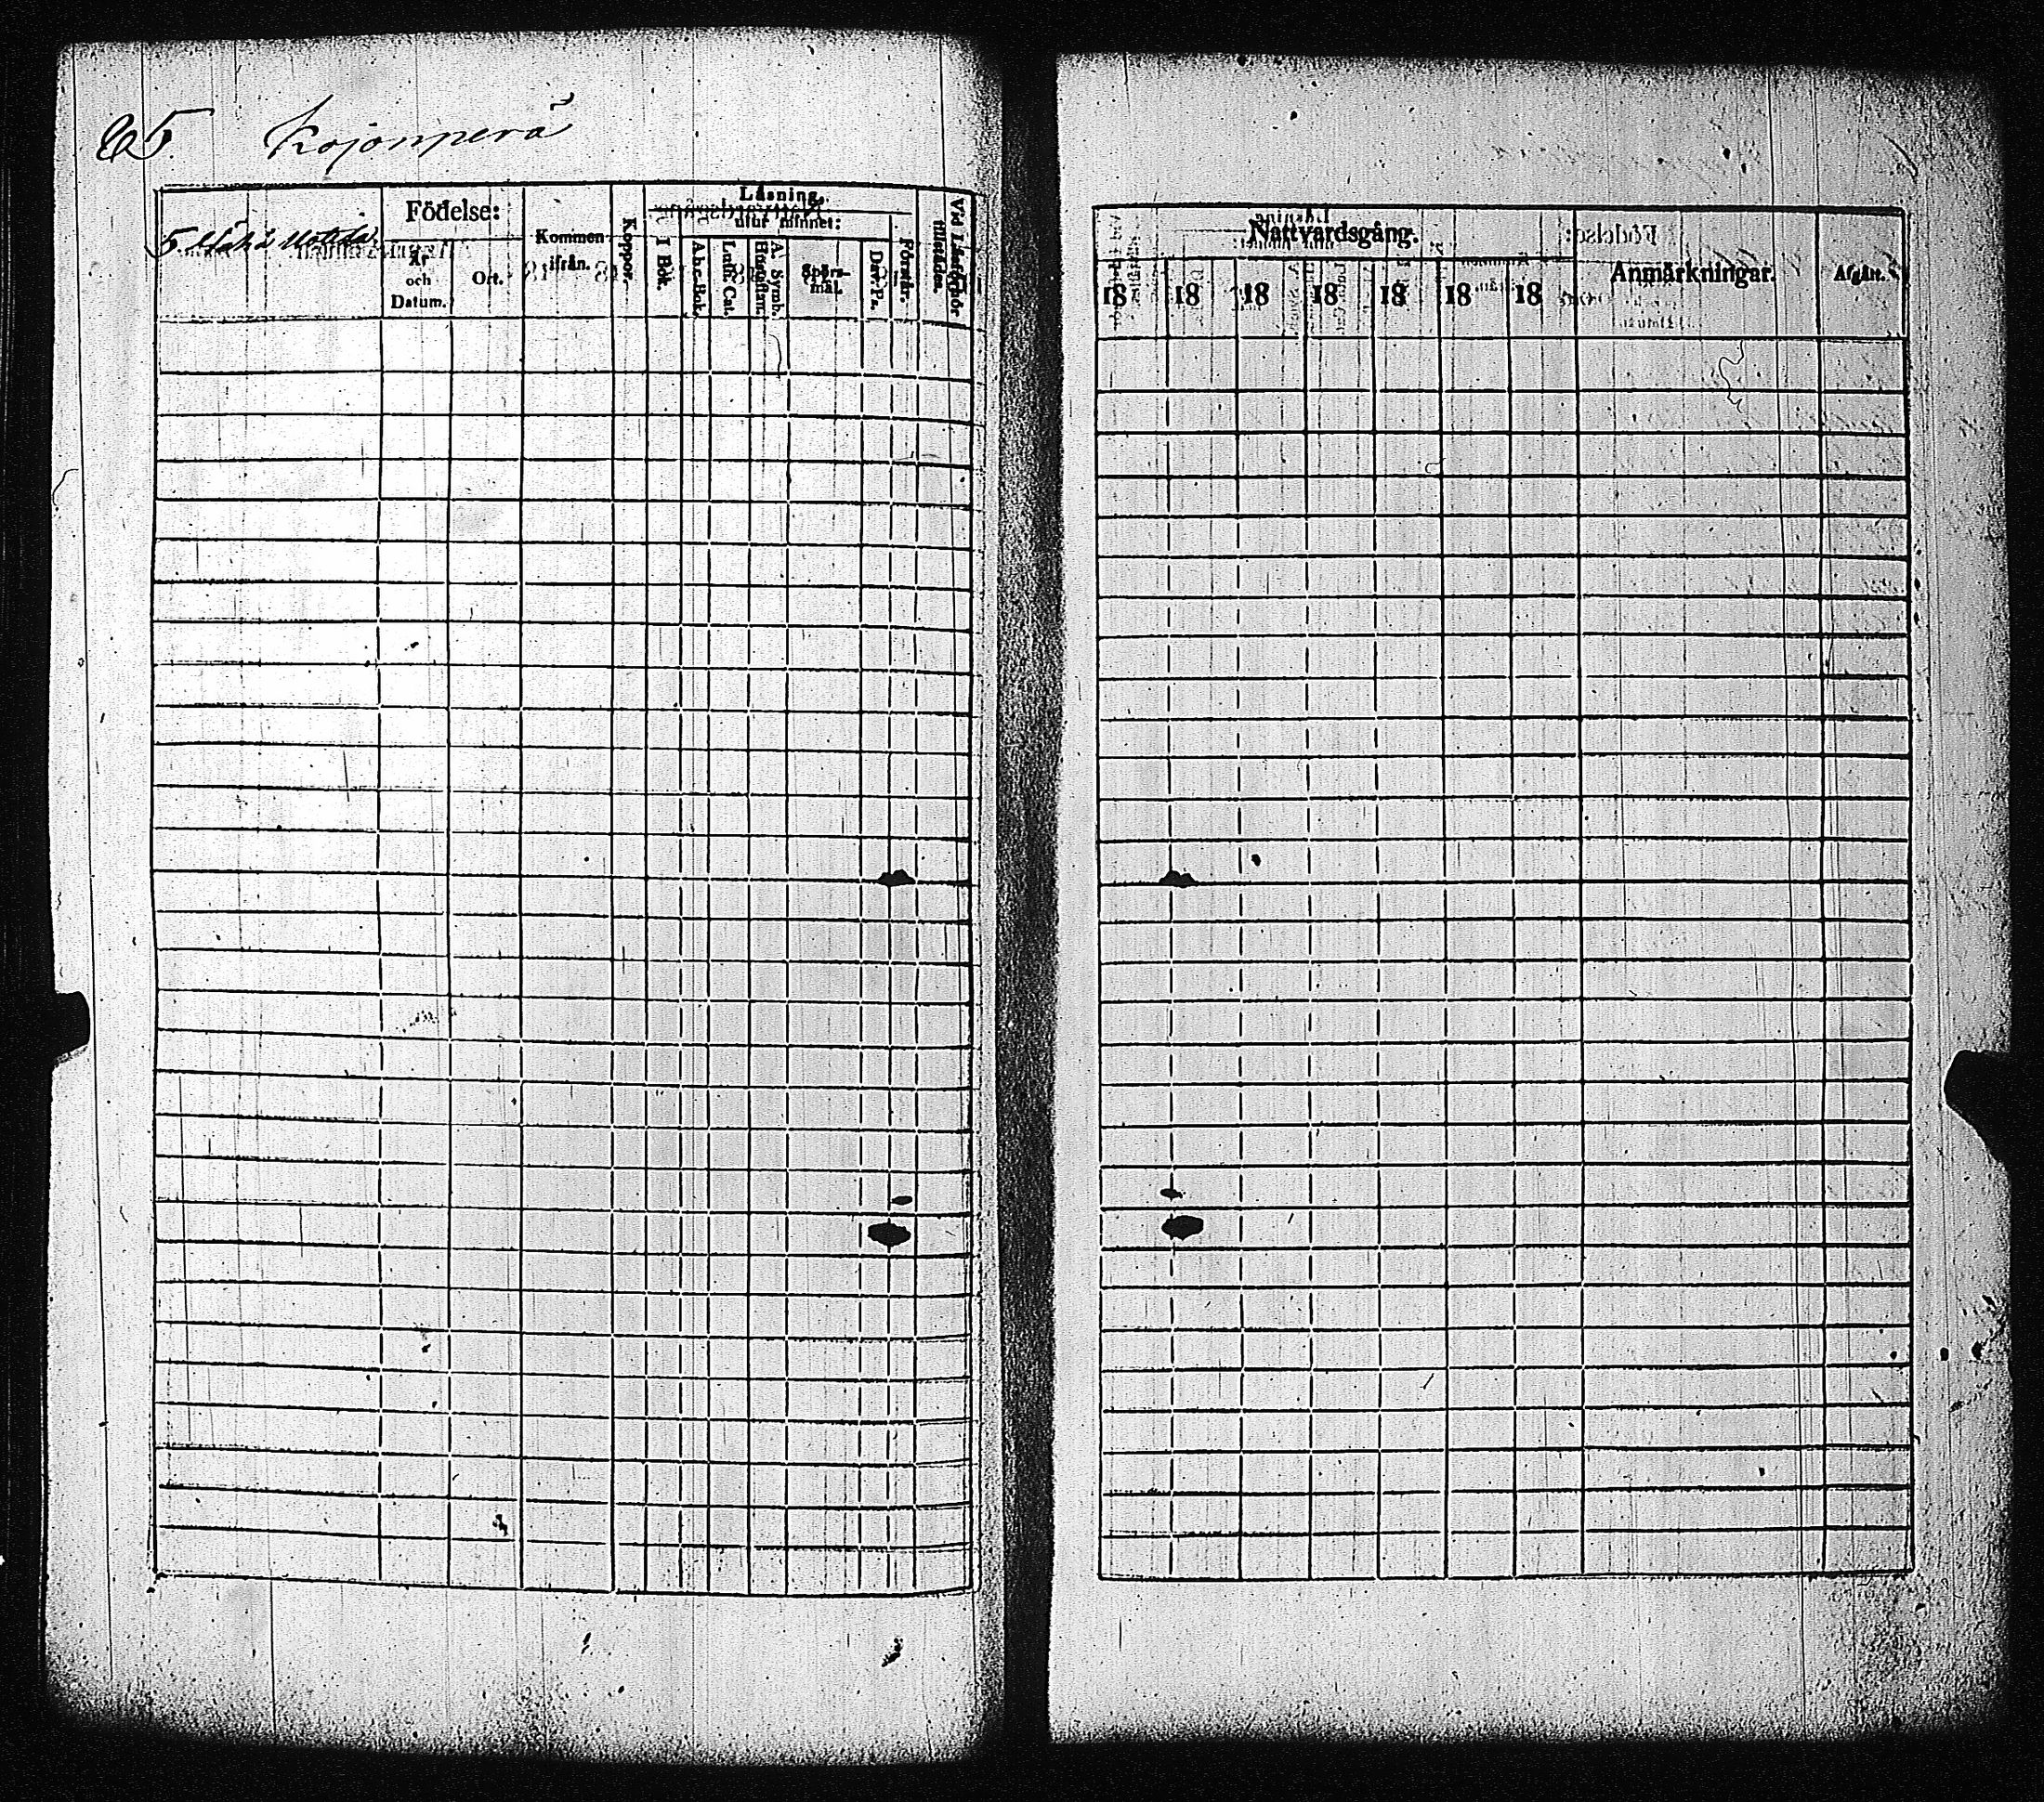 65 Kojonperä
5.
Födelse:
År
och
Datum.
Ort.
Kommen
ifrån.
Koppor.
Läsning,
utur minnet:
I Bok.
A.b.c.Bok.
Luth. Cat.
A. Symb.
Hustaflan.
Spörs-
mål.
Dav. Ps.
Förstår.
Vid Läsförhör
tillstädes.
Nattvardsgång.
18 18 18 18 18 18 18
Anmärkningar.
Afgått.